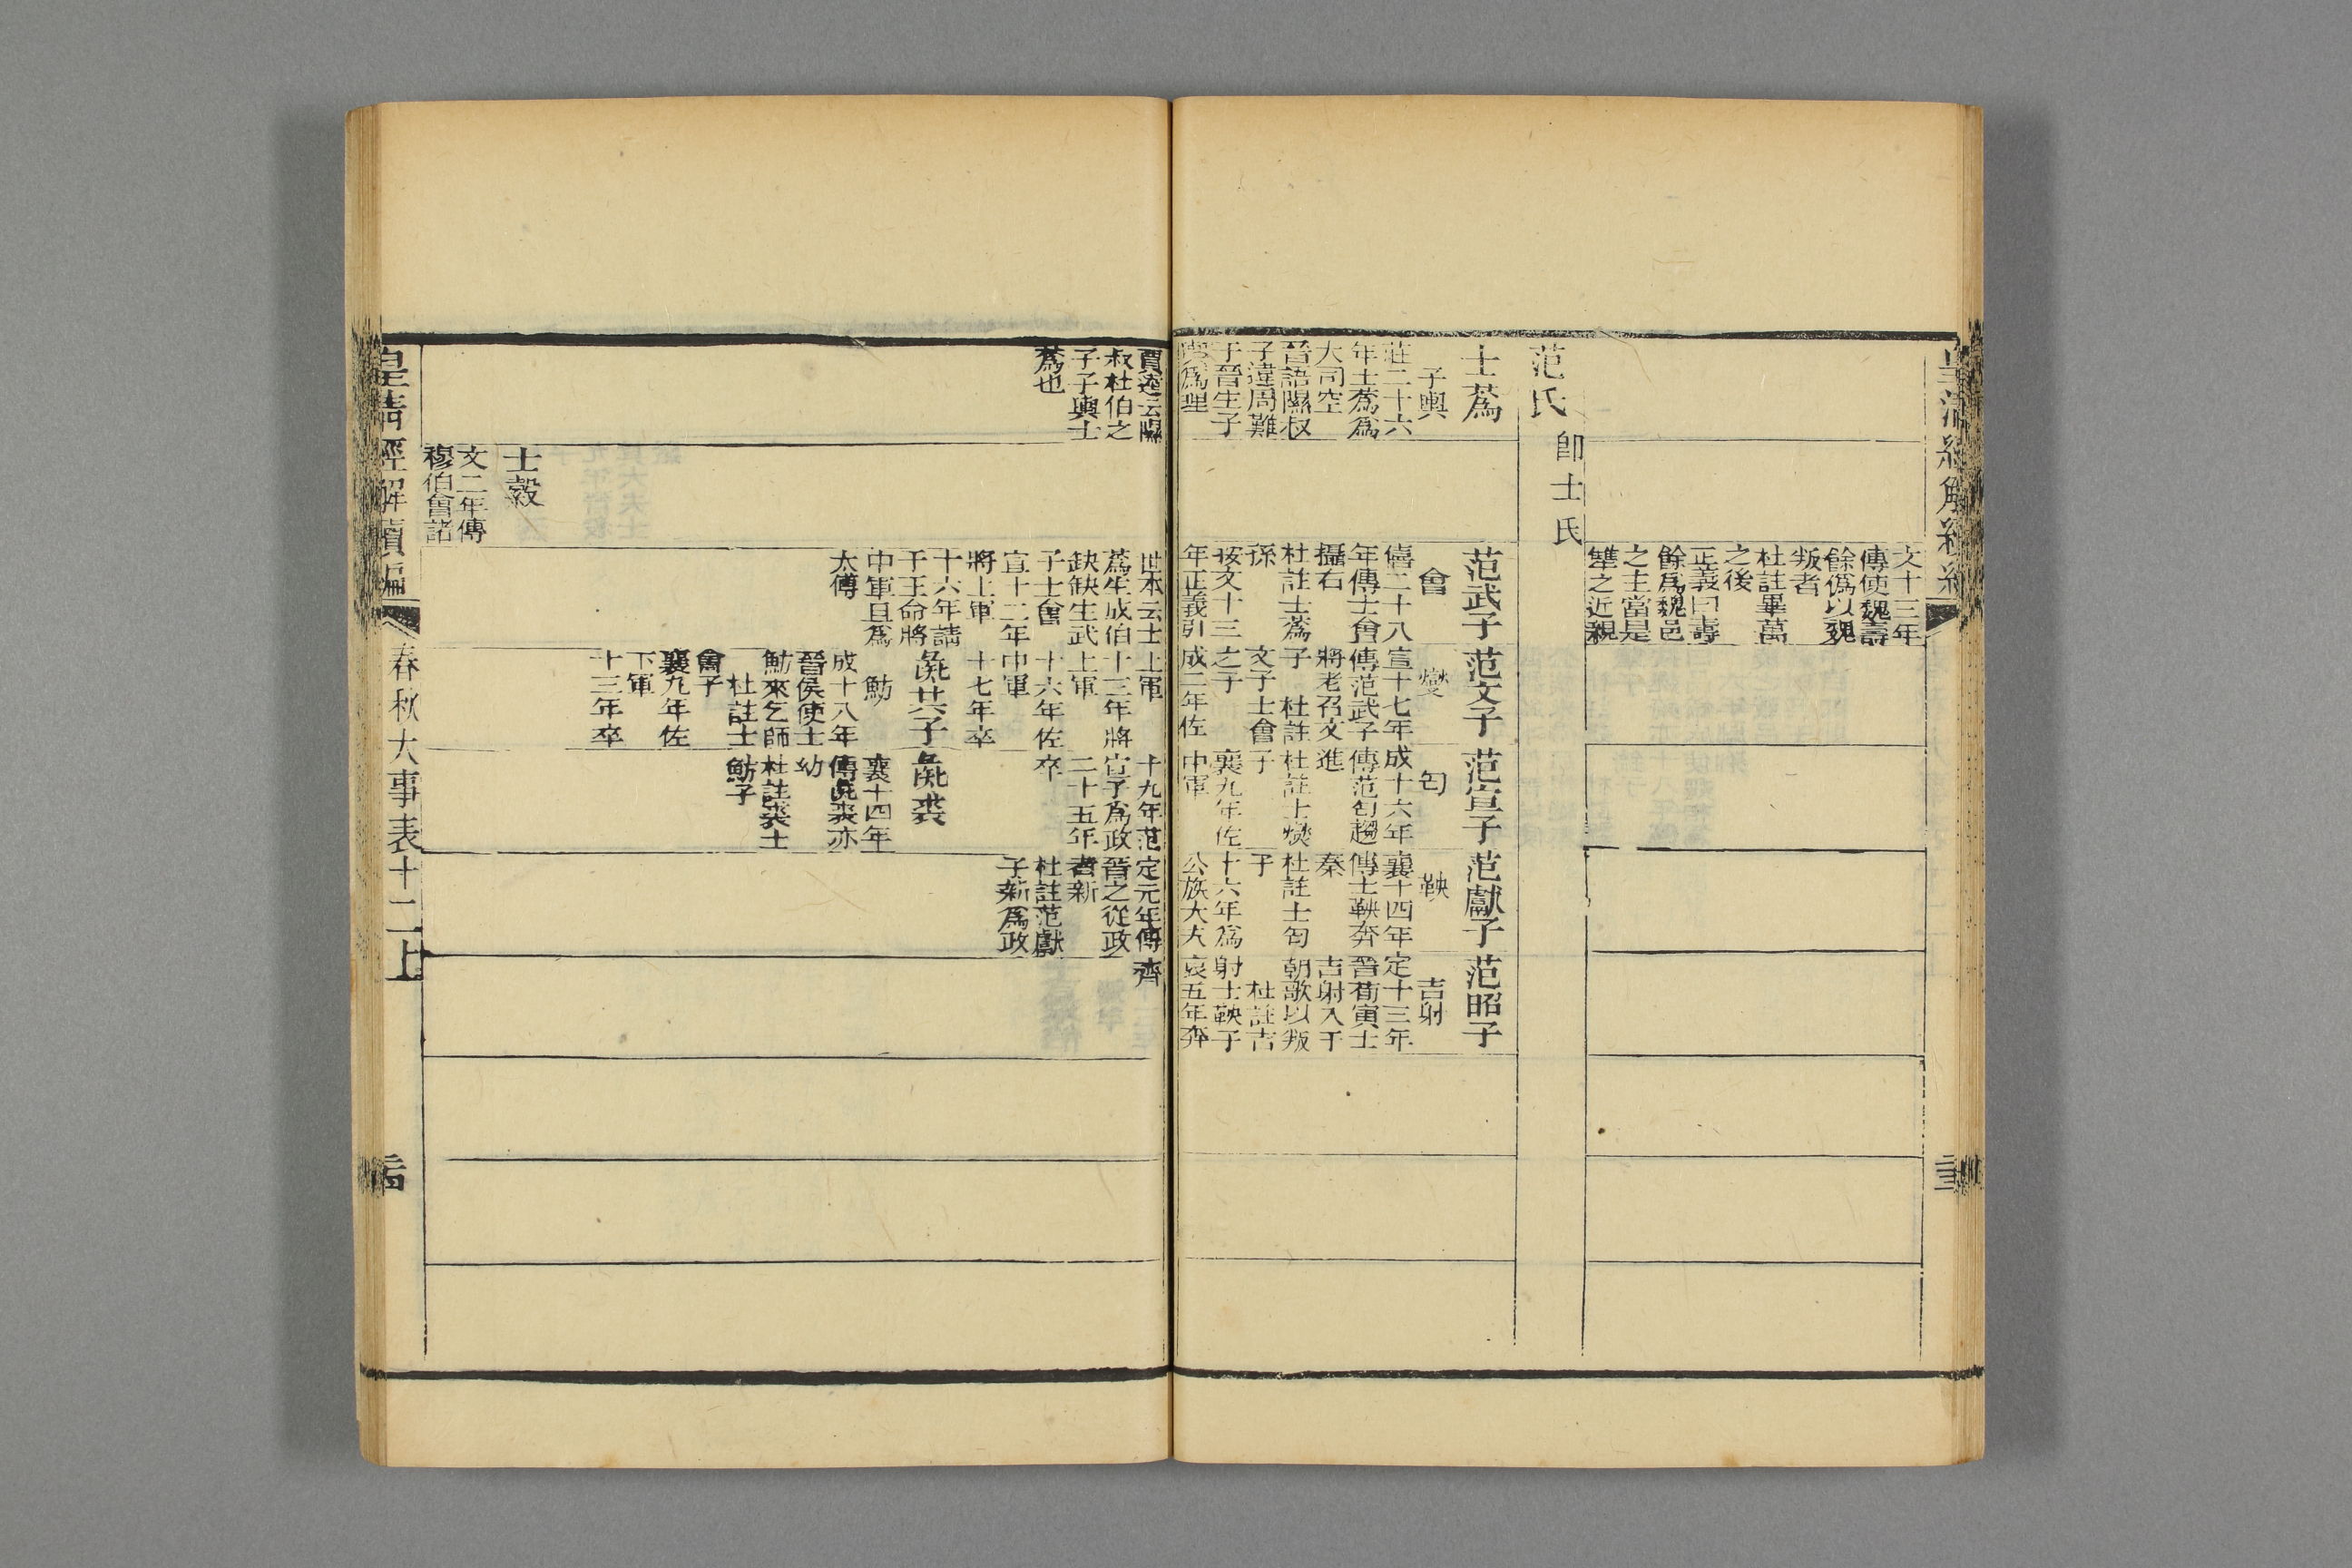 皇清經解續編
文十三年
傳使魏壽
餘僞以魏
叛者
杜註畢萬
之後
正義曰壽
餘爲魏邑
之主當是
犨之近親
范氏 即士氏
士蔿
子輿
莊二十六
年士蔿爲
大司空
晉語隰叔
子違周難
于晉生子
輿爲理
范武子
會
僖二十八
年傳士會
攝右
杜註士蔿
孫
按文十三
年正義引
范文子
燮
宣十七年
傳范武子
將老召文
子 杜註
文子士會
之子
成二年佐
范宣子
匄
成十六年
傳范匄趨
進
杜註士燮
子
襄九年佐
中軍
范獻子
鞅
襄十四年
傳士鞅奔
秦
杜註士匄
子
十六年爲
公族大夫
范昭子
吉射
定十三年
晉荀寅士
吉射入于
朝歌以叛
杜註吉
射士鞅子
哀五年奔
賈逵云隰
叔杜伯之
子子輿士
蔿也
士縠
文二年傳
穆伯會諸
世本云士
蔿生成伯
缺缺生武
子士會
宣十二年
將上軍
十六年請
于王命將
中軍且爲
太傅
上軍
十三年將
上軍
十六年佐
中軍
十七年卒
彘共子
魴
成十八年
晉侯使士
魴來乞師
杜註士
會子
襄九年佐
下軍
十三年卒
十九年范
宣子爲政
二十五年
卒
彘裘
襄十四年
傳彘裘亦
幼
杜註裘士
魴子
定元年傳
晉之從政
者新
杜註范獻
子新爲政
齊
皇清經解續編
春秋大事表十二上